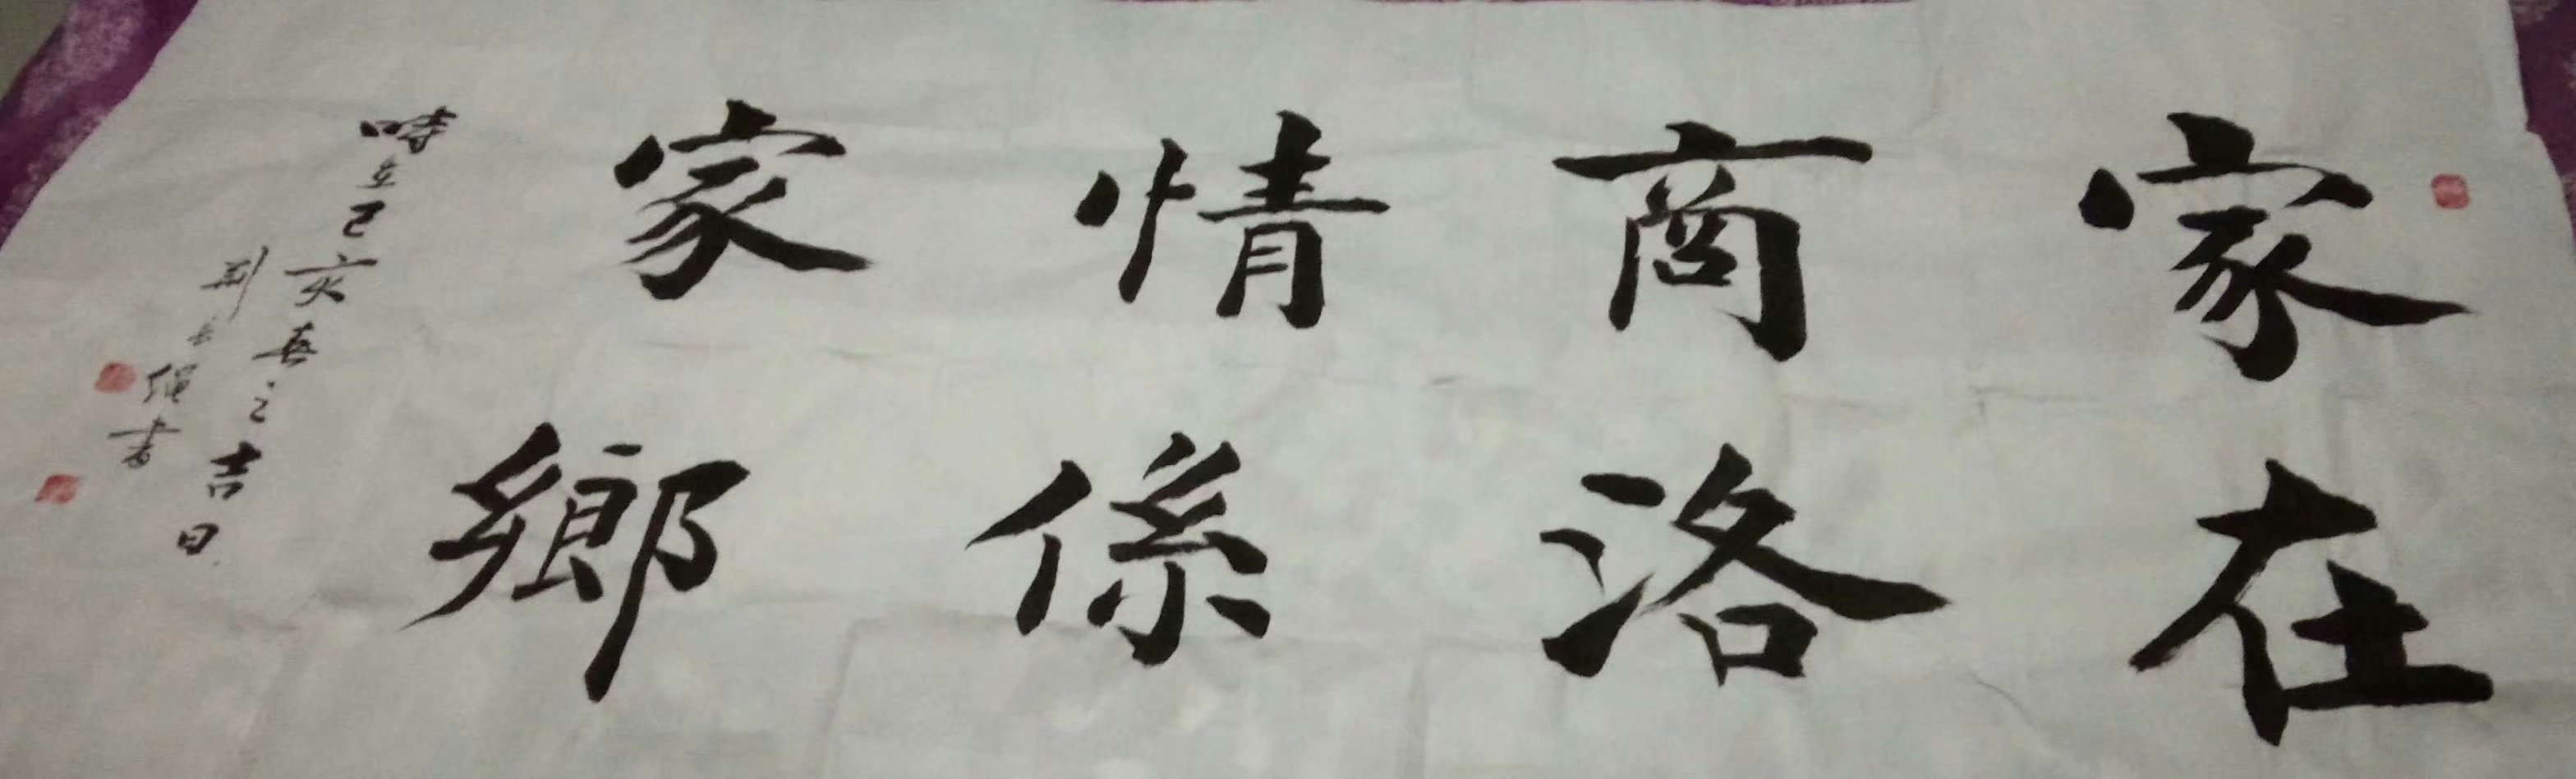 家在
商洛
情係
家鄉
時在己亥春之吉日
荆 绳書